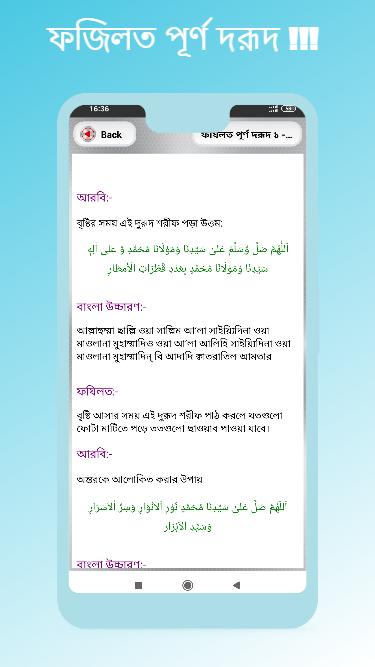 ফজিলত পূর্ণ দরূদ !!!
16:36
Back
ফযিলত পূর্ণ দরূদ ১ -...
আরবি:-
বৃষ্টির সময় এই দুরূদ শরীফ পড়া উত্তম:
اَللّٰهُمَّ صَلِّ وَسَلِّمْ عَلىٰ سَيِّدِنَا وَمَوْلَانَا مُحَمَّدٍ وَّ عَلى اٰلِهٖ
سَيِّدِنَا وَمَولَانَا مُحَمَّدٍ بِعَدَدِ قَطَرَاتِ الْأَمطَارِ
বাংলা উচ্চারণ:-
আল্লাহুম্মা ছাল্লি ওয়া সাল্লিম আ'লা সাইয়্যিদিনা ওয়া
মাওলানা মুহাম্মাদিও ওয়া আ'লা আলিহি সাইয়্যিদিনা ওয়া
মাওলানা মুহাম্মাদিন্ বি আদাদি ক্বাতরাতিল আমতার
ফযিলত:-
বৃষ্টি আসার সময় এই দুরূদ শরীফ পাঠ করলে যতগুলো
ফোটা মাটিতে পড়ে ততগুলো ছাওয়াব পাওয়া যাবে।
আরবি:-
অন্তরকে আলোকিত করার উপায়
اَللّٰهُمَّ صَلِّ عَلىٰ سَيِّدِنَا مُحَمَّدٍ نُوْرِ الْاَنْوَارِ وَسِرِّ الْاَسْرَارِ
وَسَيِّدِ الْاَبْرَارِ
বাংলা উচ্চারণ:-